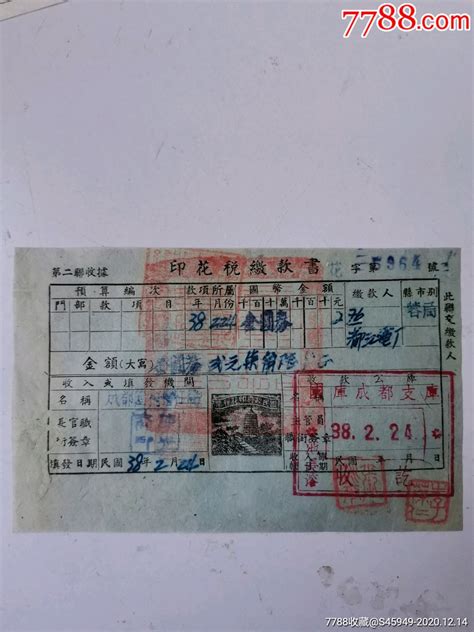 7788.com
第二聯收據
印花稅繳款書
花字第 5964 號
預算編次 款項所屬 國幣金額 繳款人 縣市別
門部款項目 年月份 千百十萬千百十元
38 2 24 金圓券 2 76
此聯交繳款人
金額(大寫) 金圓券 貳元柒角陸
收入或填發機關
收款公庫
名稱
國庫成都支庫
長官職
行簽章
38.2.24
填發日期民國38年2月24日
收訖
7788收藏@S45949-2020.12.14